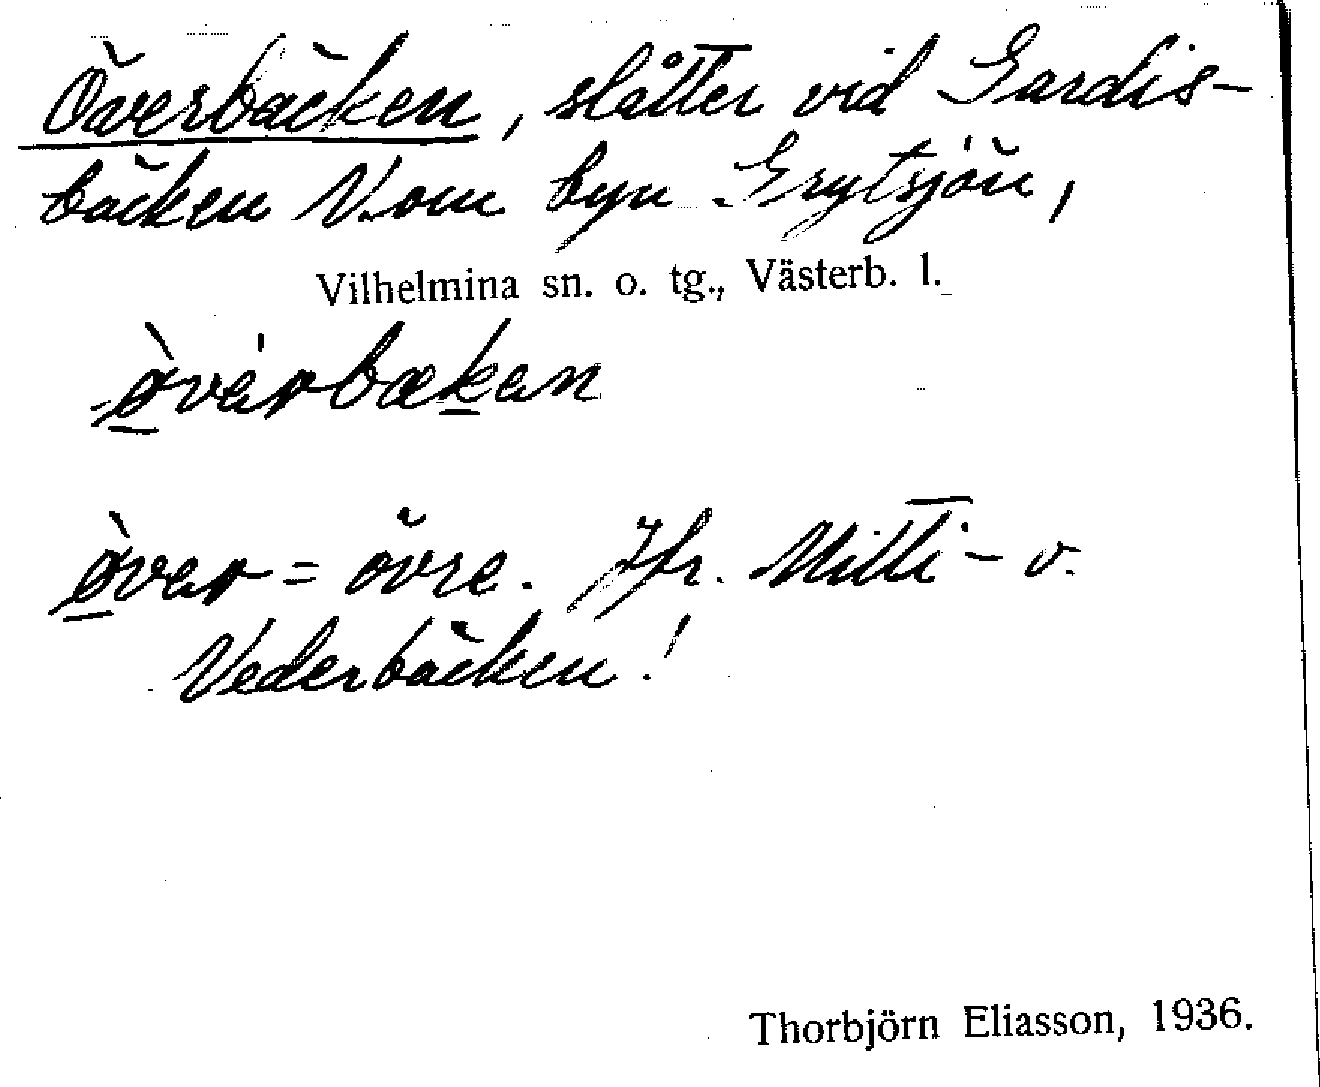 Överbäcken, slåtter vid Gardis-
bäcken V. om byn Grytsjön,
Vilhelmina sn. o. tg., Västerb. l.
ø̀vérbækan
ø̀ver = övre. Jfr. Mitti- o.
Vederbäcken!
Thorbjörn Eliasson, 1936.